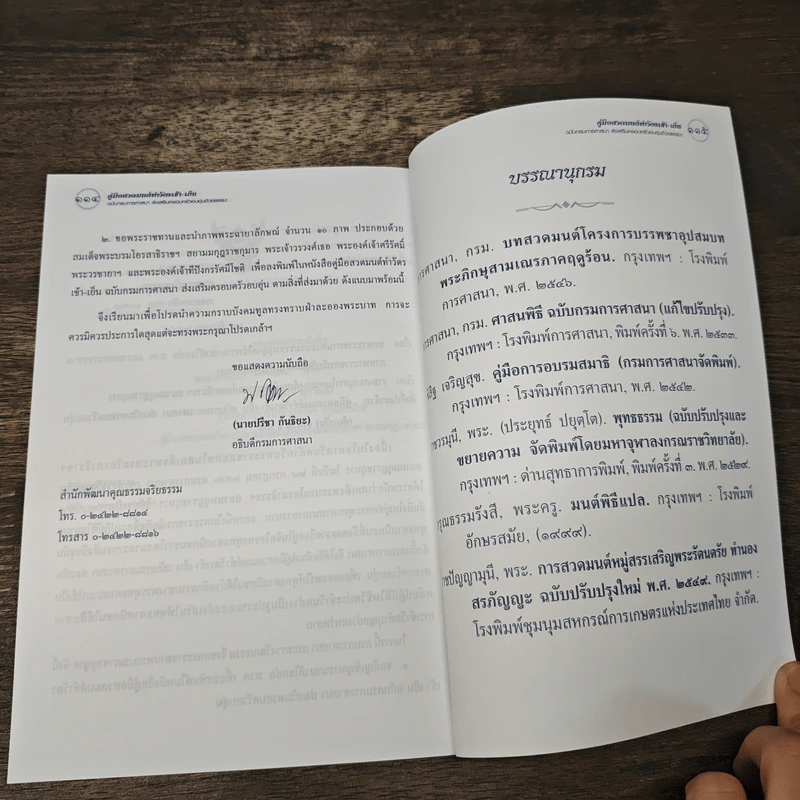 ๑๑๔
คู่มือสวดมนต์ทำวัตรเช้า-เย็น
ฉบับกรมการศาสนา ส่งเสริมครอบครัวอบอุ่นด้วยธรรมะ
๒. ขอพระราชทานและนำภาพพระฉายาลักษณ์ จำนวน ๑๐ ภาพ ประกอบด้วย
สมเด็จพระบรมโอรสาธิราชฯ สยามมกุฎราชกุมาร พระเจ้าวรวงศ์เธอ พระองค์เจ้าศรีรัศมิ์
พระวรชายาฯ และพระองค์เจ้าทีปังกรรัศมีโชติ เพื่อลงพิมพ์ในหนังสือคู่มือสวดมนต์ทำวัตร
เช้า-เย็น ฉบับกรมการศาสนา ส่งเสริมครอบครัวอบอุ่น ตามสิ่งที่ส่งมาด้วย ดังแนบมาพร้อมนี้
จึงเรียนมาเพื่อโปรดนำความกราบบังคมทูลทรงทราบฝ่าละอองพระบาท การจะ
ควรมิควรประการใดสุดแต่จะทรงพระกรุณาโปรดเกล้าฯ
ขอแสดงความนับถือ
(นายปรีชา กันธิยะ)
อธิบดีกรมการศาสนา
สำนักพัฒนาคุณธรรมจริยธรรม
โทร. ๐-๒๔๒๒-๘๘๑๔
โทรสาร ๐-๒๔๒๒-๘๘๑๖
คู่มือสวดมนต์ทำวัตรเช้า-เย็น
ฉบับกรมการศาสนา ส่งเสริมครอบครัวอบอุ่นด้วยธรรมะ
๑๑๕
บรรณานุกรม
การศาสนา, กรม. บทสวดมนต์โครงการบรรพชาอุปสมบท
พระภิกษุสามเณรภาคฤดูร้อน. กรุงเทพฯ : โรงพิมพ์
การศาสนา, พ.ศ. ๒๕๔๖.
การศาสนา, กรม. ศาสนพิธี ฉบับกรมการศาสนา (แก้ไขปรับปรุง).
กรุงเทพฯ : โรงพิมพ์การศาสนา, พิมพ์ครั้งที่ ๖. พ.ศ. ๒๕๓๓.
เจริญสุข. คู่มือการอบรมสมาธิ (กรมการศาสนาจัดพิมพ์).
กรุงเทพฯ : โรงพิมพ์การศาสนา, พ.ศ. ๒๕๔๒.
พระ. (ประยุทธ์ ปยุตฺโต). พุทธธรรม (ฉบับปรับปรุงและ
ขยายความ จัดพิมพ์โดยมหาจุฬาลงกรณราชวิทยาลัย).
กรุงเทพฯ : ด่านสุทธาการพิมพ์, พิมพ์ครั้งที่ ๓. พ.ศ. ๒๕๒๙.
พระครู. มนต์พิธีแปล. กรุงเทพฯ : โรงพิมพ์
อักษรสมัย, (๑๙๙๙).
พระ. การสวดมนต์หมู่สรรเสริญพระรัตนตรัย ทำนอง
สรภัญญะ ฉบับปรับปรุงใหม่ พ.ศ. ๒๕๔๙. กรุงเทพฯ :
โรงพิมพ์ชุมนุมสหกรณ์การเกษตรแห่งประเทศไทย จำกัด.